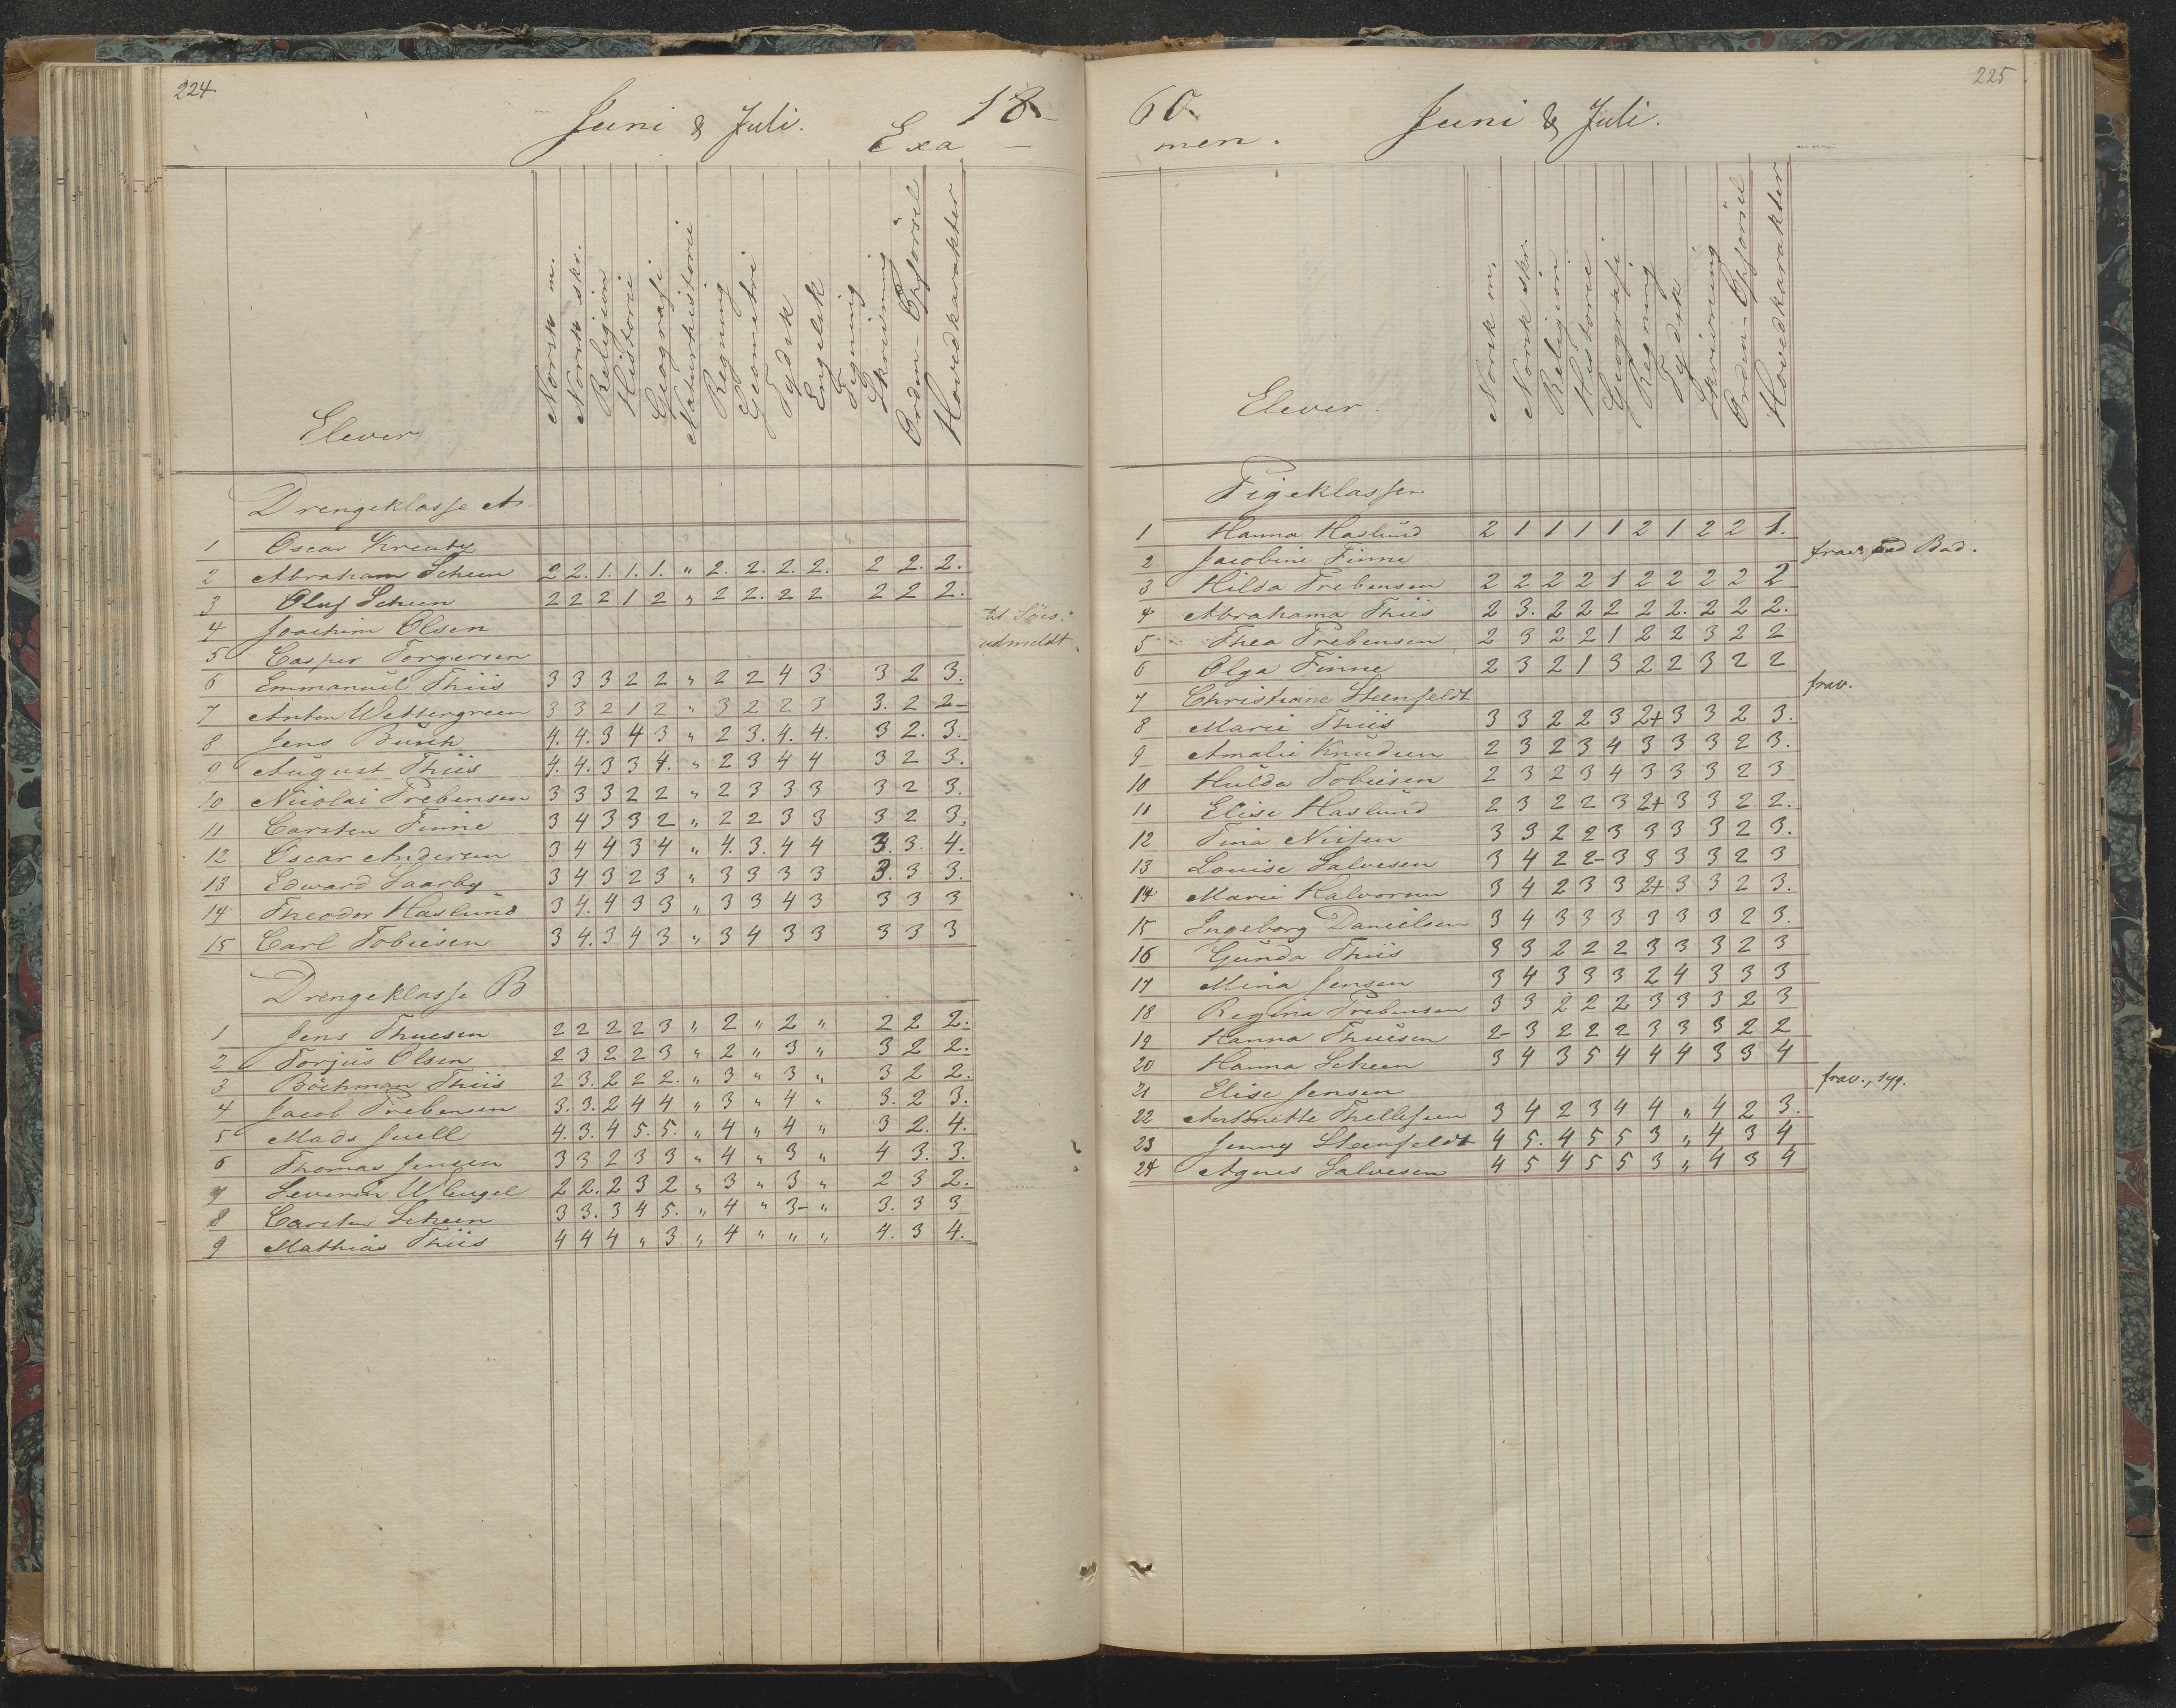 224.
Juni & Juli.
18
Exa
Elever
Norsk m.
Norsk skr.
Religion
Historie
Geografi
Naturhistorie
Regning
Geometri
Tydsk
Engelsk
Tegning
Skrivning
Orden - Opförsel
Hovedkarakter
Drengeklasse A
1 Oscar
2 Abraham Scheen 2 2. 1. 1. 1. " 2. 2. 2. 2. 2 2. 2.
3 Oluf Scheen 2 2 2 1 2 " 2 2. 2 2 2 2 2.
4 Joachim Olsen til Söes.
5 Casper Torgersen udmeldt.
6 Emmanuel Thiis 3 3 3 2 2 " 2 2 4 3 3 2 3.
7 Anton Wettergreen 3 3 2 1 2 " 3 2 2 3 3. 2 2-
8 Jens Busch 4. 4. 3 4 3 " 2 3. 4. 4. 3 2. 3.
9 August Thiis 4. 4. 3 3 4. " 2 3 4 4 3 2 3.
10 Nicolai Prebensen 3 3 3 2 2 " 2 3 3 3 3 2 3.
11 Carsten Finne 3 4 3 3 2 " 2 2 3 3 3 2 3.
12 Oscar Andersen 3 4 4 3 4 " 4. 3. 4 4 3. 3. 4.
13 Edward Saarby 3 4 3 2 3 " 3 3 3 3 3. 3. 3.
14 Theodor Haslund 3 4. 4 3 3 " 3 3 4 3 3 3 3
15 Carl Tobiesen 3 4. 3 4 3 " 3 4 3 3 3 3 3
Drengeklasse B
1 Jens Thuesen 2 2 2 2 3 " 2 " 2 " 2 2 2.
2 Torjus Olsen 2 3 2 2 3 " 2 " 3 " 3 2 2.
3 Böckman Thiis 2 3. 2 2 2. " 3 " 3 " 3 2 2.
4 Jacob Prebensen 3. 3. 2 4 4 " 3 " 4 " 3. 2 3.
5 Mads Juell 4. 3. 4 5. 5. " 4 " 4 " 3 2. 4.
6 Thomas Jensen 3 3 2 3 3 " 4 " 3 " 4 3. 3.
7 Severin Wleugel 2 2. 2 3 2 " 3 " 3 " 2 3 2.
8 Carsten Scheen 3 3. 3 4 5. " 4 " 3- " 3. 3 3
9 Mathias Thiis 4 4 4 " 3 " 4 " " " 4. 3 4.
225
60.
Juni & Juli.
men.
Elever.
Norsk m.
Norsk skr.
Religion
Historie
Geografi
Regning
Tydsk
Skrivning
Orden - Opförsel
Hovedkarakter
Pigeklassen
1 Hanna Haslund 2 1 1 1 1 2 1 2 2 1.
2 Jacobine Finne frav. ved Bad.
3 Hilda Prebensen 2 2 2 2 1 2 2 2 2 2
4 Abrahama Thiis 2 3. 2 2 2 2 2. 2 2 2.
5 Thea Prebensen 2 3 2 2 1 2 2 3 2 2
6 Olga Finne 2 3 2 1 3 2 2 3 2 2
7 Christiane Steenfeldt frav.
8 Marie Thiis 3 3 2 2 3 2+ 3 3 2 3.
9 Amalie Knudsen 2 3 2 3 4 3 3 3 2 3.
10 Hulda Tobiesen 2 3 2 3 4 3 3 3 2 3
11 Elise Haslund 2 3 2 2 3 2+ 3 3 2 2.
12 Tina Nissen 3 3 2 2 3 3 3 3 2 3.
13 Louise Salvesen 3 4 2 2- 3 3 3 3 2 3
14 Marie Halvorsen 3 4 2 3 3 2+ 3 3 2 3.
15 Ingeborg Danielsen 3 4 3 3 3 3 3 3 2 3.
16 Gunda Thiis 3 3 2 2 2 3 3 3 2 3
17 Mina Jensen 3 4 3 3 3 2 4 3 3 3
18 Regine Prebensen 3 3 2 2 2 3 3 3 2 3
19 Hanna Thuesen 2- 3 2 2 2 3 3 3 2 2
20 Hanna Scheen 3 4 3 5 4 4 4 3 3 4
21 Elise Jensen frav., syg.
22 Antonette Thellefsen 3 4 2 3 4 4 " 4 2 3.
23 Jenny Steenfeldt 4 5. 4 5 5 3 " 4 3 4
24 Agnes Salvesen 4 5 4 5 5 3 " 4 3 4